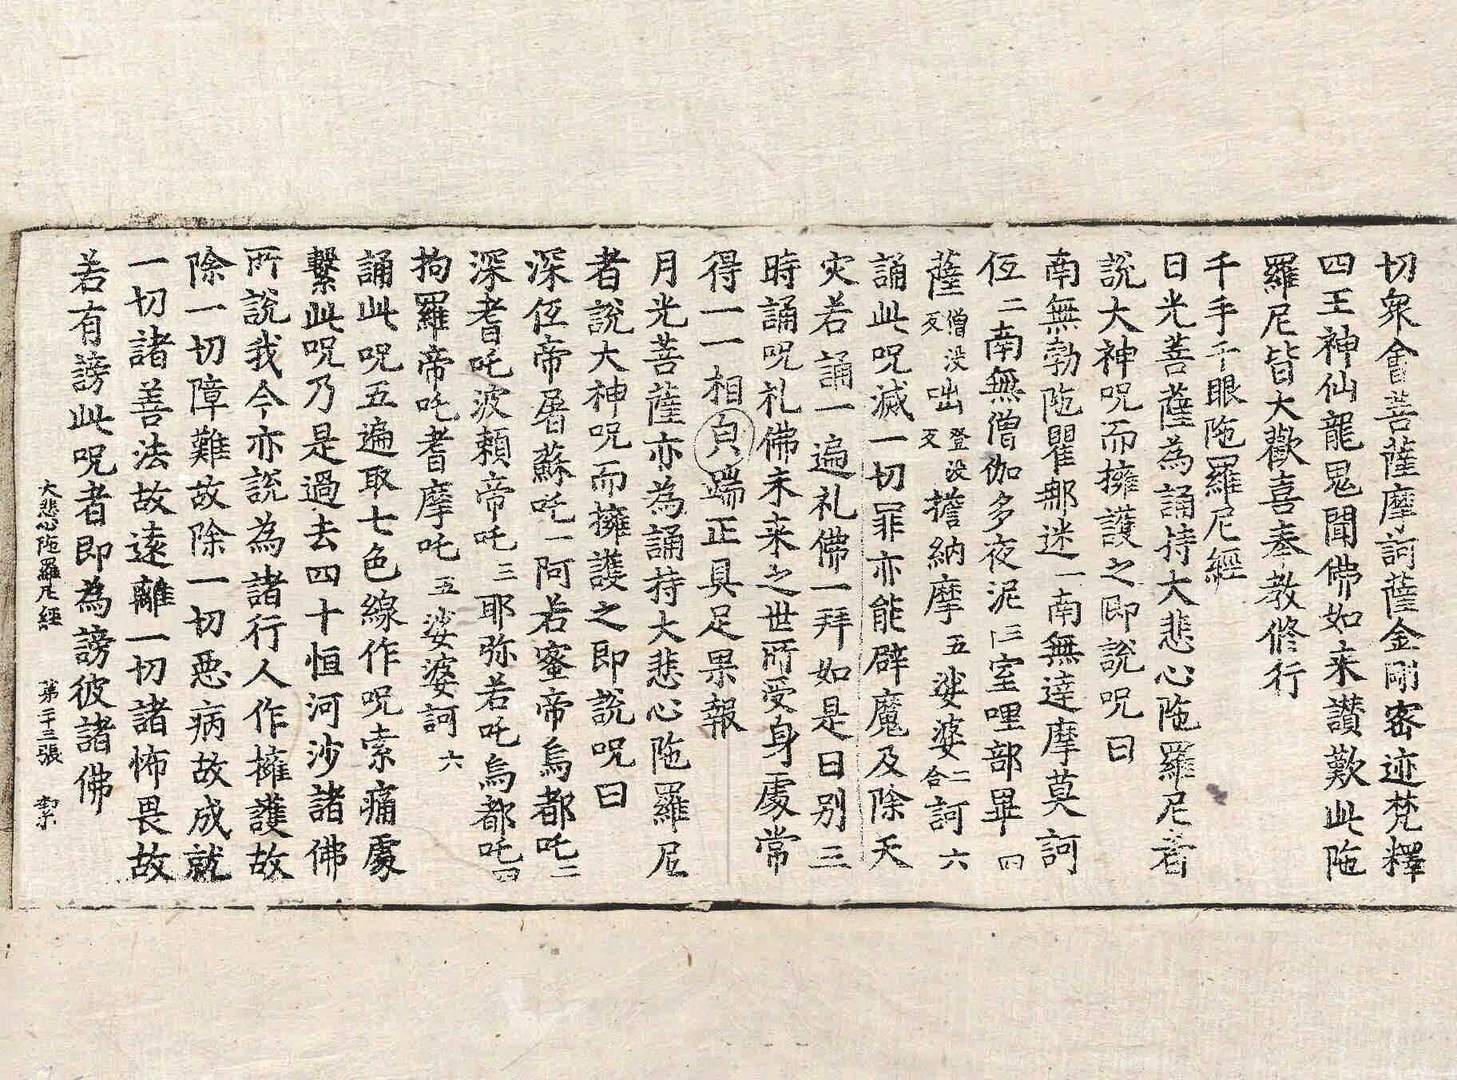 切衆會菩薩摩訶薩金剛密迹梵釋
四王神仙龍鬼聞佛如来讃歎此陁
羅尼皆大歡喜奉教修行
千手千眼陁羅尼經
日光菩薩為誦持大悲心陁羅尼者
說大神呪而擁護之即說呪曰
南無勃陁瞿㖠迷一南無達摩莫訶
伍二南無僧伽多夜泥三室哩部畢四
薩僧没反咄登没反擔納摩五娑婆二合訶六
誦此呪滅一切罪亦能辟魔及除天
灾若誦一遍礼佛一拜如是日别三
時誦呪礼佛未来之世所受身處常
得一一相皃端正具足果報
月光菩薩亦為誦持大悲心陁羅尼
者說大神呪而擁護之即說呪曰
深伍帝屠蘇吒一阿若蜜帝烏都吒二
深耆吒波頼帝吒三耶弥若吒烏都吒四
拘羅帝吒耆摩吒五娑婆訶六
誦此呪五遍取七色線作呪索痛處
繫此呪乃是過去四十恒河沙諸佛
所說我今亦說為諸行人作擁護故
除一切障難故除一切惡病故成就
一切諸善法故遠離一切諸怖畏故
若有謗此呪者即為謗彼諸佛
大悲心陁羅尼經 第二十三張